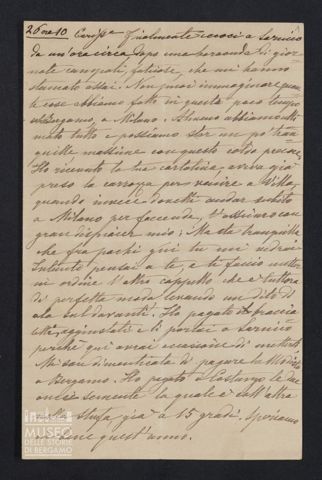 26 ore 10 Cariss.ª Finalmente eccoci a Sarnico
da un'ora circa dopo una baraonda di gior-
nate campali, faticose, che mi hanno
stremato assai. Non puoi immaginare quan-
te cose abbiamo fatto in questo poco tempo
a Bergamo, a Milano. Almeno abbiamo ulti-
mato tutto e possiamo star un po' tran-
quille massime con questo
Ho ricevuto la tua cartolina, aveva già
preso la carrozza per venire a Villa,
quando invece dovetti andar subito
a Milano per faccende, t'assicuro con
gran dispiacer mio; Ma sta tranquilla
che fra pochi giorni tu mi vedrai
Intanto pensai a te, e ti faccio metter
in ordine l'altro cappello che è tuttora
di perfetta moda levando un dito d'
ala sul davanti. Ho pagato
aggiustati e li portai a Sarnico
perchè qui avrai occasione di metterli
Mi son dimenticata di pagare la Modista
a Bergamo. Ho pagato a Costanzo le due
semente la quale è sull'altra
stufa già a 15 gradi. Speriamo
bene quest'anno.
MUSEO
DELLE STORIE
DI BERGAMO